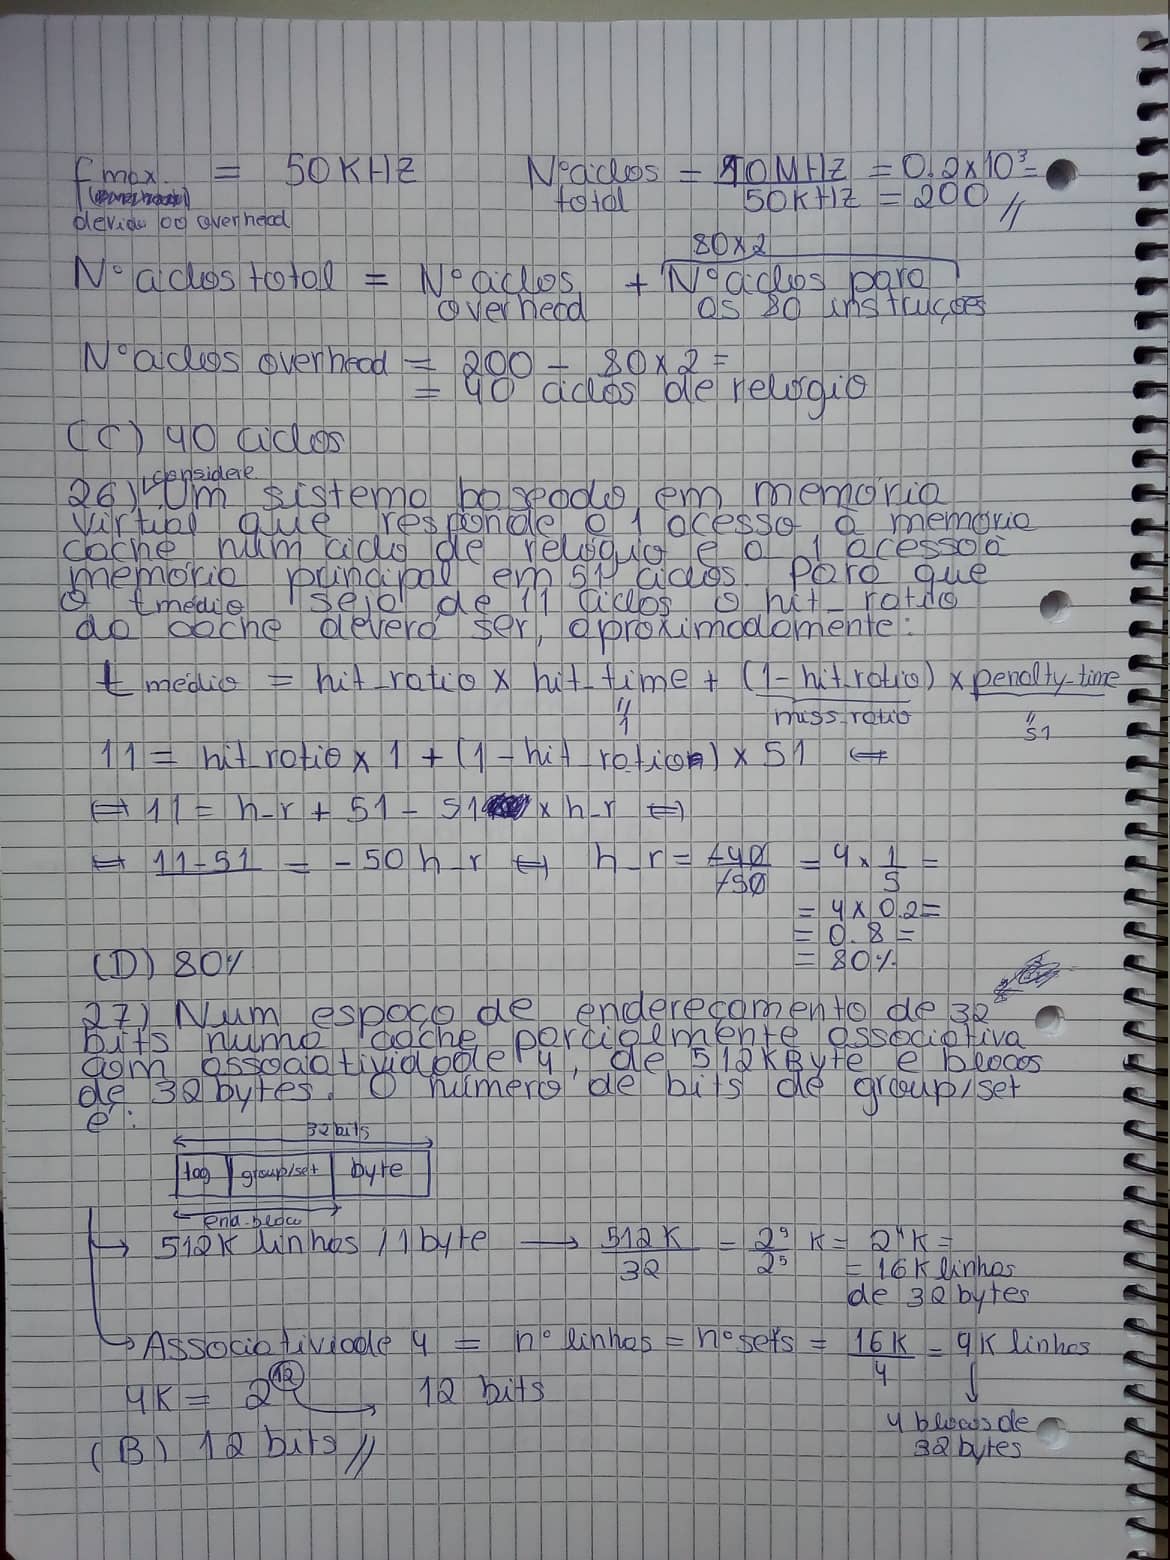 f max = 50KHZ
Nº ciclos total = 10MHZ / 50KHZ = 0.2x10³ = 200 //
devido ao overhead
80x2
Nº ciclos total = Nº ciclos overhead + Nº ciclos para as 80 instruções
Nº ciclos overhead = 200 - 80x2 =
= 40 ciclos de relógio
(C) 40 ciclos
considere
26) Um sistema baseado em memória
virtual que responde a 1 acesso a memória
cache num ciclo de relógio e a 1 acesso à
memória principal em 51 ciclos. Para que
o tmédio seja de 11 ciclos o hit_ratio
da cache deverá ser, aproximadamente:
t médio = hit_ratio x hit_time + (1-hit_ratio) x penalty-time
1 miss_ratio 51
11 = hit_ratio x 1 + (1-hit_ration) x 51 ⇔
⇔ 11 = h_r + 51 - 51 x h_r ⇔
⇔ 11-51 = -50 h_r ⇔ h_r = -40/-50 = 4 x 1/5 =
= 4 x 0.2 =
= 0.8 =
= 80%
(D) 80%
27) Num espaço de endereçamento de 32
bits numa cache parcialmente associativa
com associatividade 4, de 512KByte e blocos
de 32 bytes. O número de bits de group/set
é:
32 bits
tag group/set byte
end. bloco
→ 512K linhas / 1 byte → 512K/32 = 2⁹/2⁵ K = 2⁴K =
= 16K linhas
de 32 bytes
→ Associatividade 4 = nº linhas = nº sets = 16K/4 = 4K linhas
4K = 2¹² → 12 bits
4 blocos de
32 bytes
(B) 12 bits //